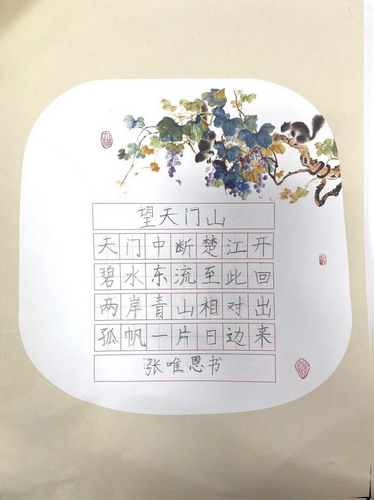 望天门山
天门中断楚江开
碧水东流至此回
两岸青山相对出
孤帆一片日边来
张唯恩书